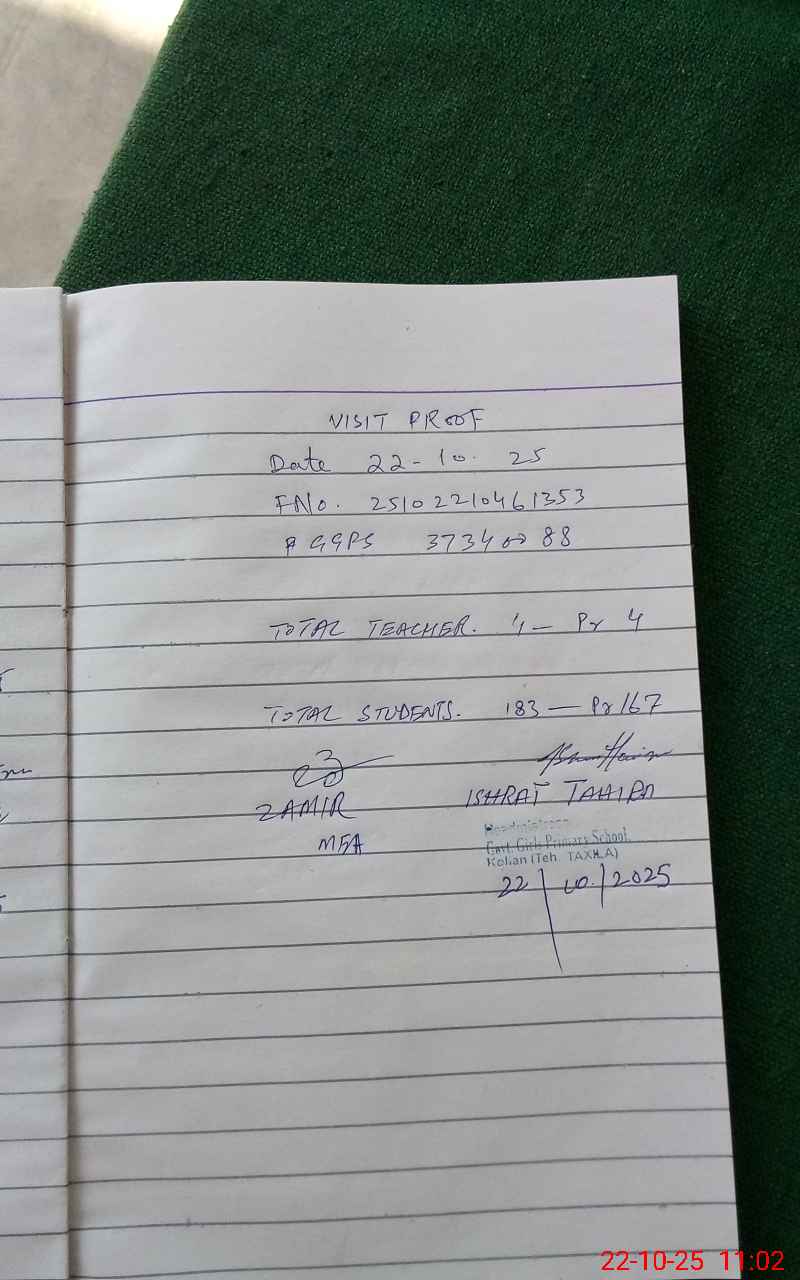 VISIT PROOF
Date 22-10. 25
FNo. 25102210461353
GGPS 37340088
TOTAL TEACHER. 4 — Pr 4
TOTAL STUDENTS. 183 — Pr 167
ZAMIR
MEA
ISHRAT TAHIRA
Headmistress
Govt. Girls Primary School,
Kolian (Teh. TAXILA)
22/10/2025
22-10-25 11:02